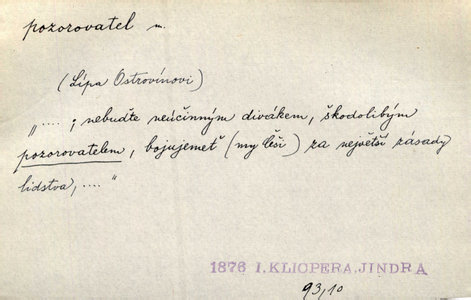 pozorovatel m.
(Lípa Ostrovínovi)
„ .... ; nebuďte neúčinným divákem, škodolibým
pozorovatelem, bojujemeť (my Češi) za největší zásady
lidstva, .... "
1876 I. KLICPERA. JINDRA
93,10